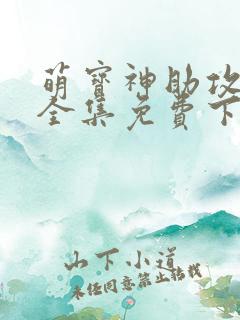 萌寶神助攻
全集免費下
山下小道
未经同意禁止转载